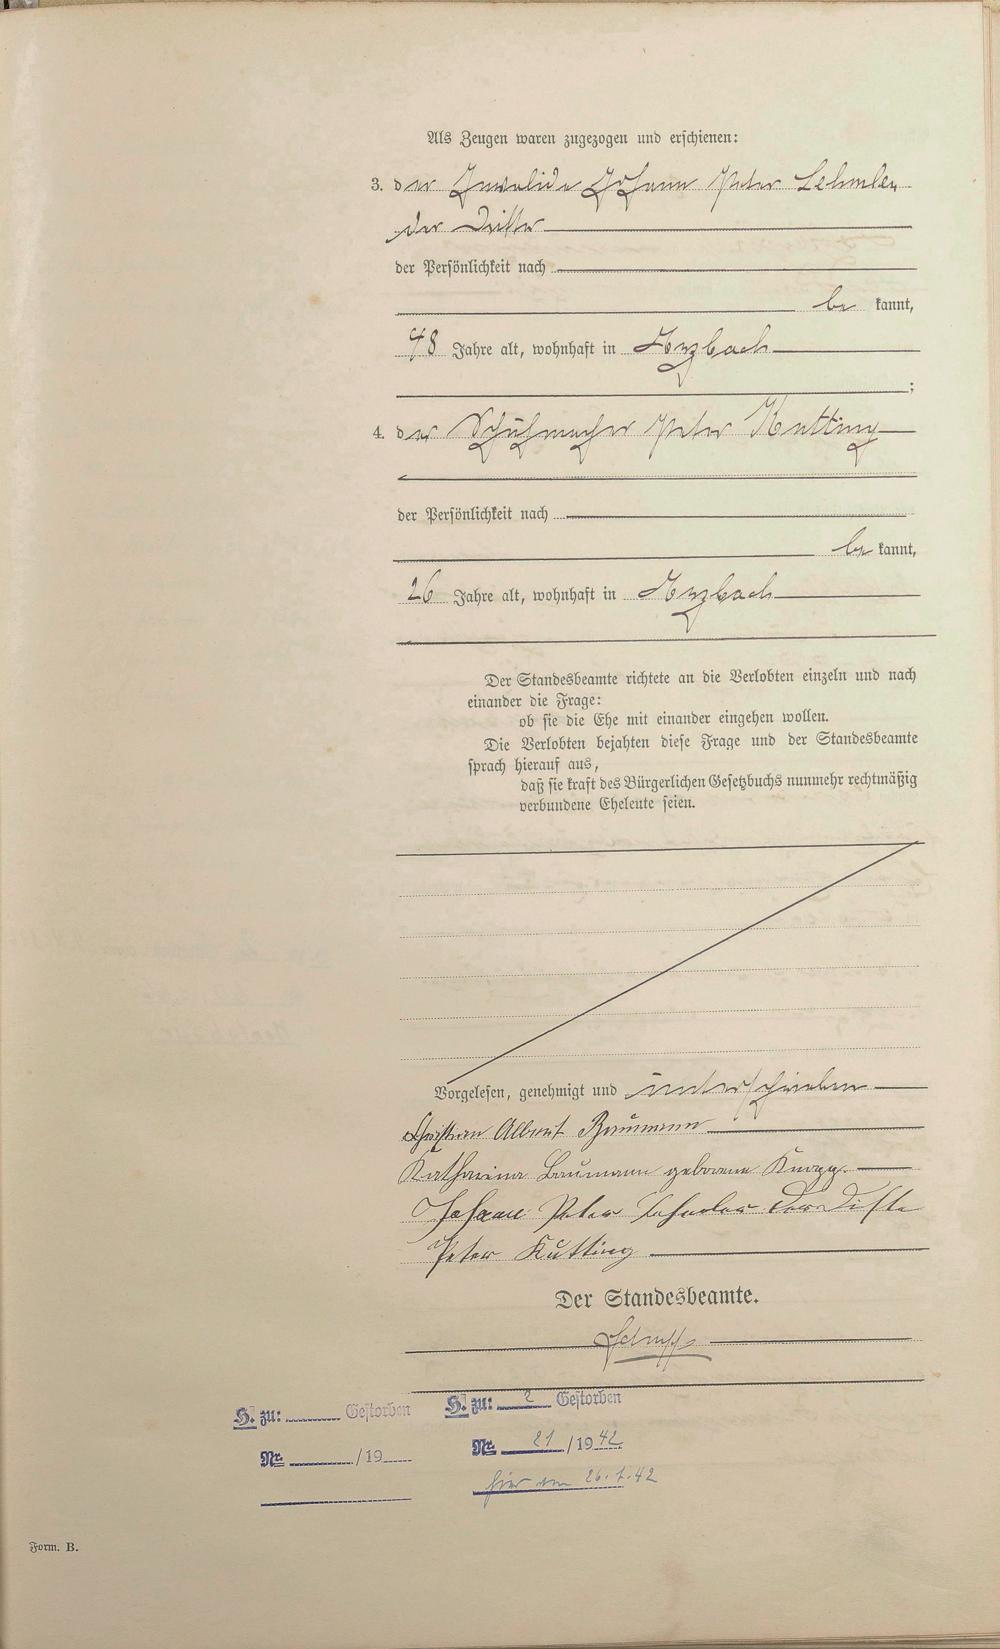 Als Zeugen waren zugezogen und erschienen:
3. der Invalide Johann Peter
der Dritte
der Persönlichkeit nach
be kannt,
48 Jahre alt, wohnhaft in Arzbach
;
4. der Schuhmacher Peter Kutting
der Persönlichkeit nach
be kannt,
26 Jahre alt, wohnhaft in Arzbach
Der Standesbeamte richtete an die Verlobten einzeln und nach
einander die Frage:
ob sie die Ehe mit einander eingehen wollen.
Die Verlobten bejahten diese Frage und der Standesbeamte
sprach hierauf aus,
daß sie kraft des Bürgerlichen Gesetzbuchs nunmehr rechtmäßig
verbundene Eheleute seien.
Vorgelesen, genehmigt und unterschrieben
Christian Albert Baumann
Katharina Baumann geborene Knapp.
Johann Peter der Dritte
Peter Kutting
Der Standesbeamte.
H. zu: Gestorben H. zu: 2 Gestorben
Nr. /19 Nr. 21 /19 42
hier am 26.7.42
Form. B.